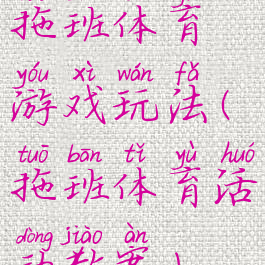 拖班体育
yóu xì wán fǎ
游戏玩法(
tuō bān tǐ yù huó
拖班体育活
dòng jiào àn
动教案)